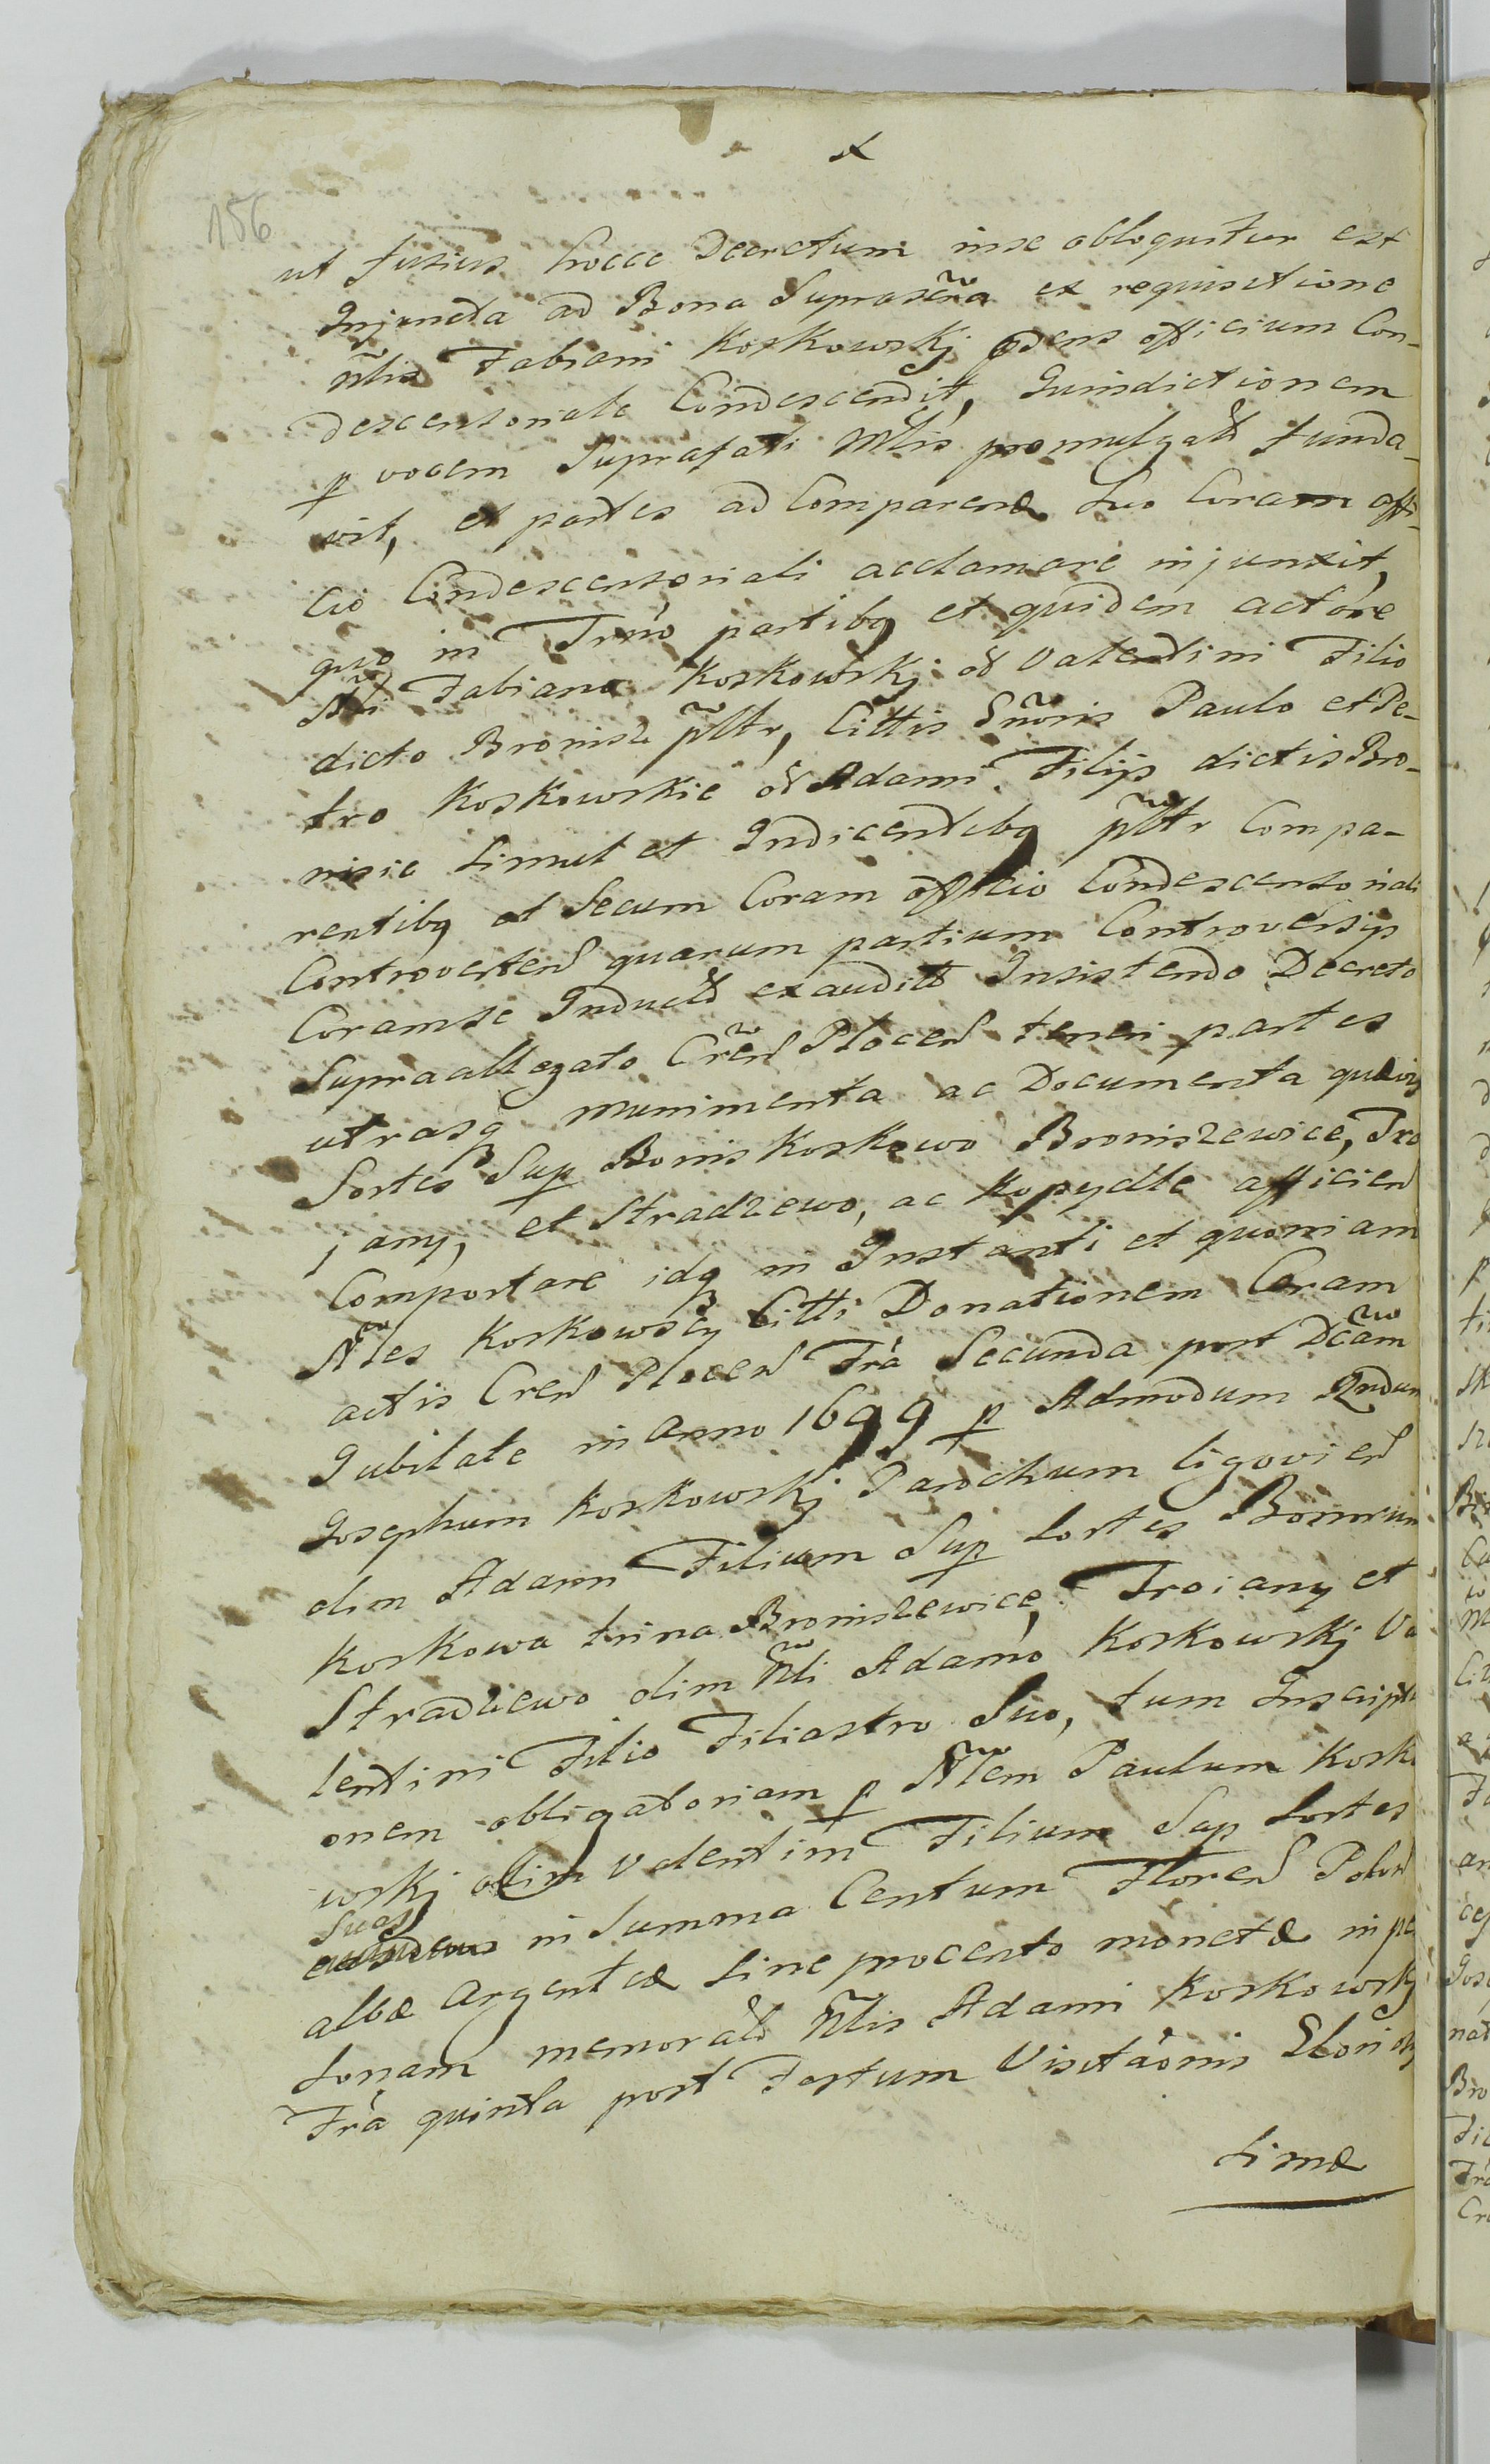 156
ut fusius hocce Decretum in se obloquitur est
Injuncta ad Bona Suprascrta ex requisitione
Nlis Fabiani Koskowskj pdens officium Con-
descensoriale Condescendit, Jurisdictionem
p vocem Suprafati Mlis promulgatd funda-
vit, et partes ad Comparend Suo Coram offi-
cio Condescensoriali acclamare injunxit,
quo in Trno partibq et quidem actore
Nli Fabiano Koskowskj od Valentini Filio
dicto Bronisz pltr, Cittis Snoris Paulo et Pe-
tro Koskowskie od Adami Filijs dictis Bro-
nisie simul et Indicentibq pltr Compa-
rentibq et Secum Coram officio Condescensoriali
Controverten quarum partium Controversijs
Coramse Inductd exauditd Insistendo Decreto
Supraallegato Cren Plocen teneri partes
utrasq munimenta ac Documenta quævis
Sortes Sup Bonis Koskowo Broniszewice, Tro
jany, et Stradzewo, ac Kopydle afficien
Comportare idq in Instanti et quoniam
Nles Koskowscy Citti Donationem Coram
actis Cren Plocen Fra Secunda post Dcam
Jubilate in Anno 1699 p Admodum Rndum
Josephum Koskowskj Parochum ligovien
olim Adami Filium Sup Sortes Bonorum
Koskowa trina Broniszewice, Troiany et
Stradzewo olim Nli Adamo Koskowskj Va
lentini Filio Filiastro Suo, tum Inscripti
onem obligatoriam p Nlem Paulum Kosko
wskj olim Valentini Filium Sup Sortes
Suas
in Summa Centum Floren Polon
albæ argenteæ sine procento monetæ in per
sonam memoratd Nlis Adami Koskowskj
Fra quinta post Festum Visitaonis Glorio
simæ